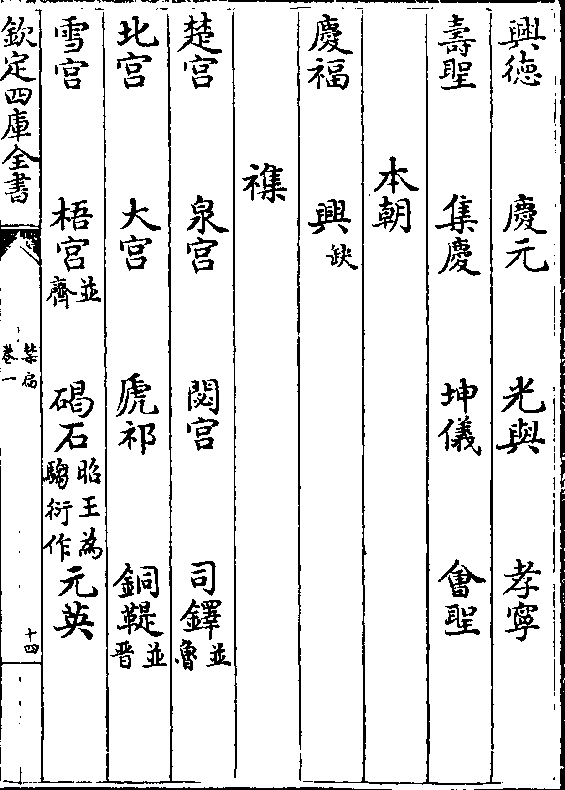 興徳 慶元 光與 孝寧
壽聖 集慶 坤儀 會聖
本朝
慶福 興缺
襍
楚宫 泉宫 閟宫 司鐸並魯
北宫 大宫 虒祁 銅鞮並晋
雪宫 梧宫並齊 碣石昭王為騶衍作 元英
欽定四庫全書 禁扁 卷一 十四